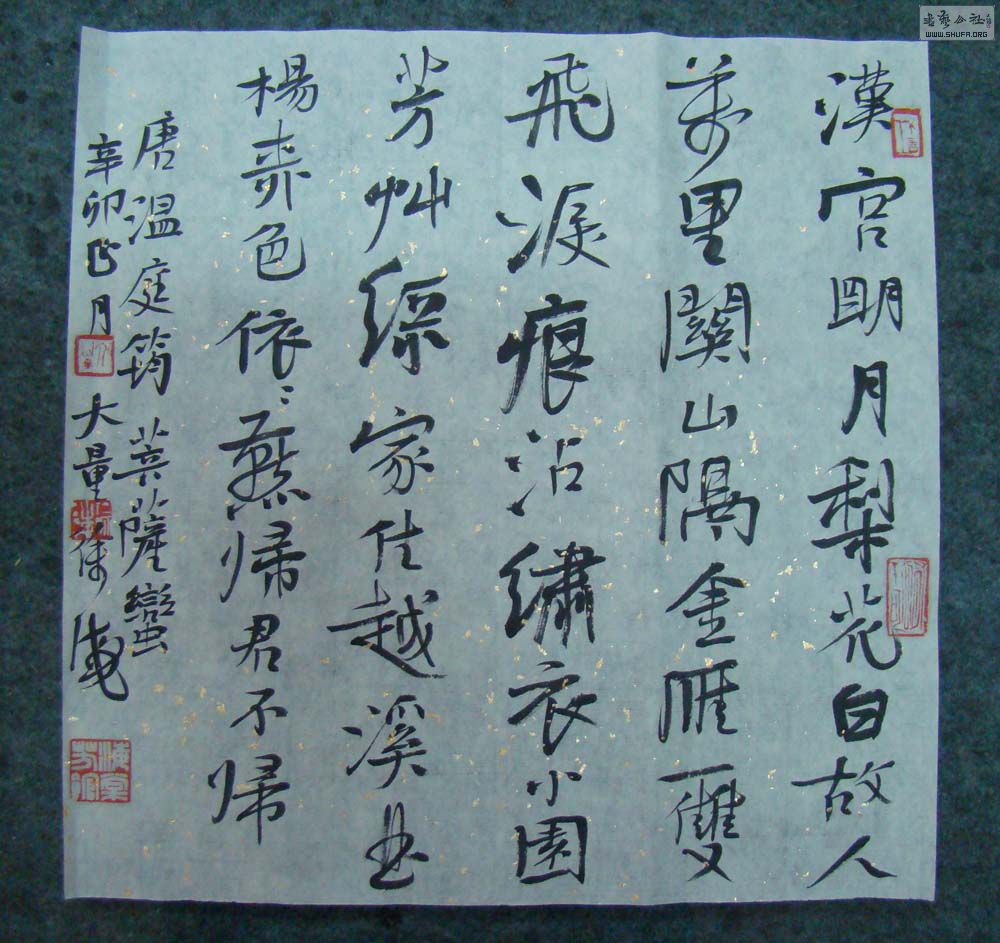 漢宫朙月棃花白故人
萬里關山隔金雁雙
飛淚痕沾繡衣小園
芳艸綠家住越溪曲
楊桺色依〻燕帰君不帰
唐温庭筠菩薩蠻
辛卯正月
大量
書藝公社
WWW.SHUFA.ORG